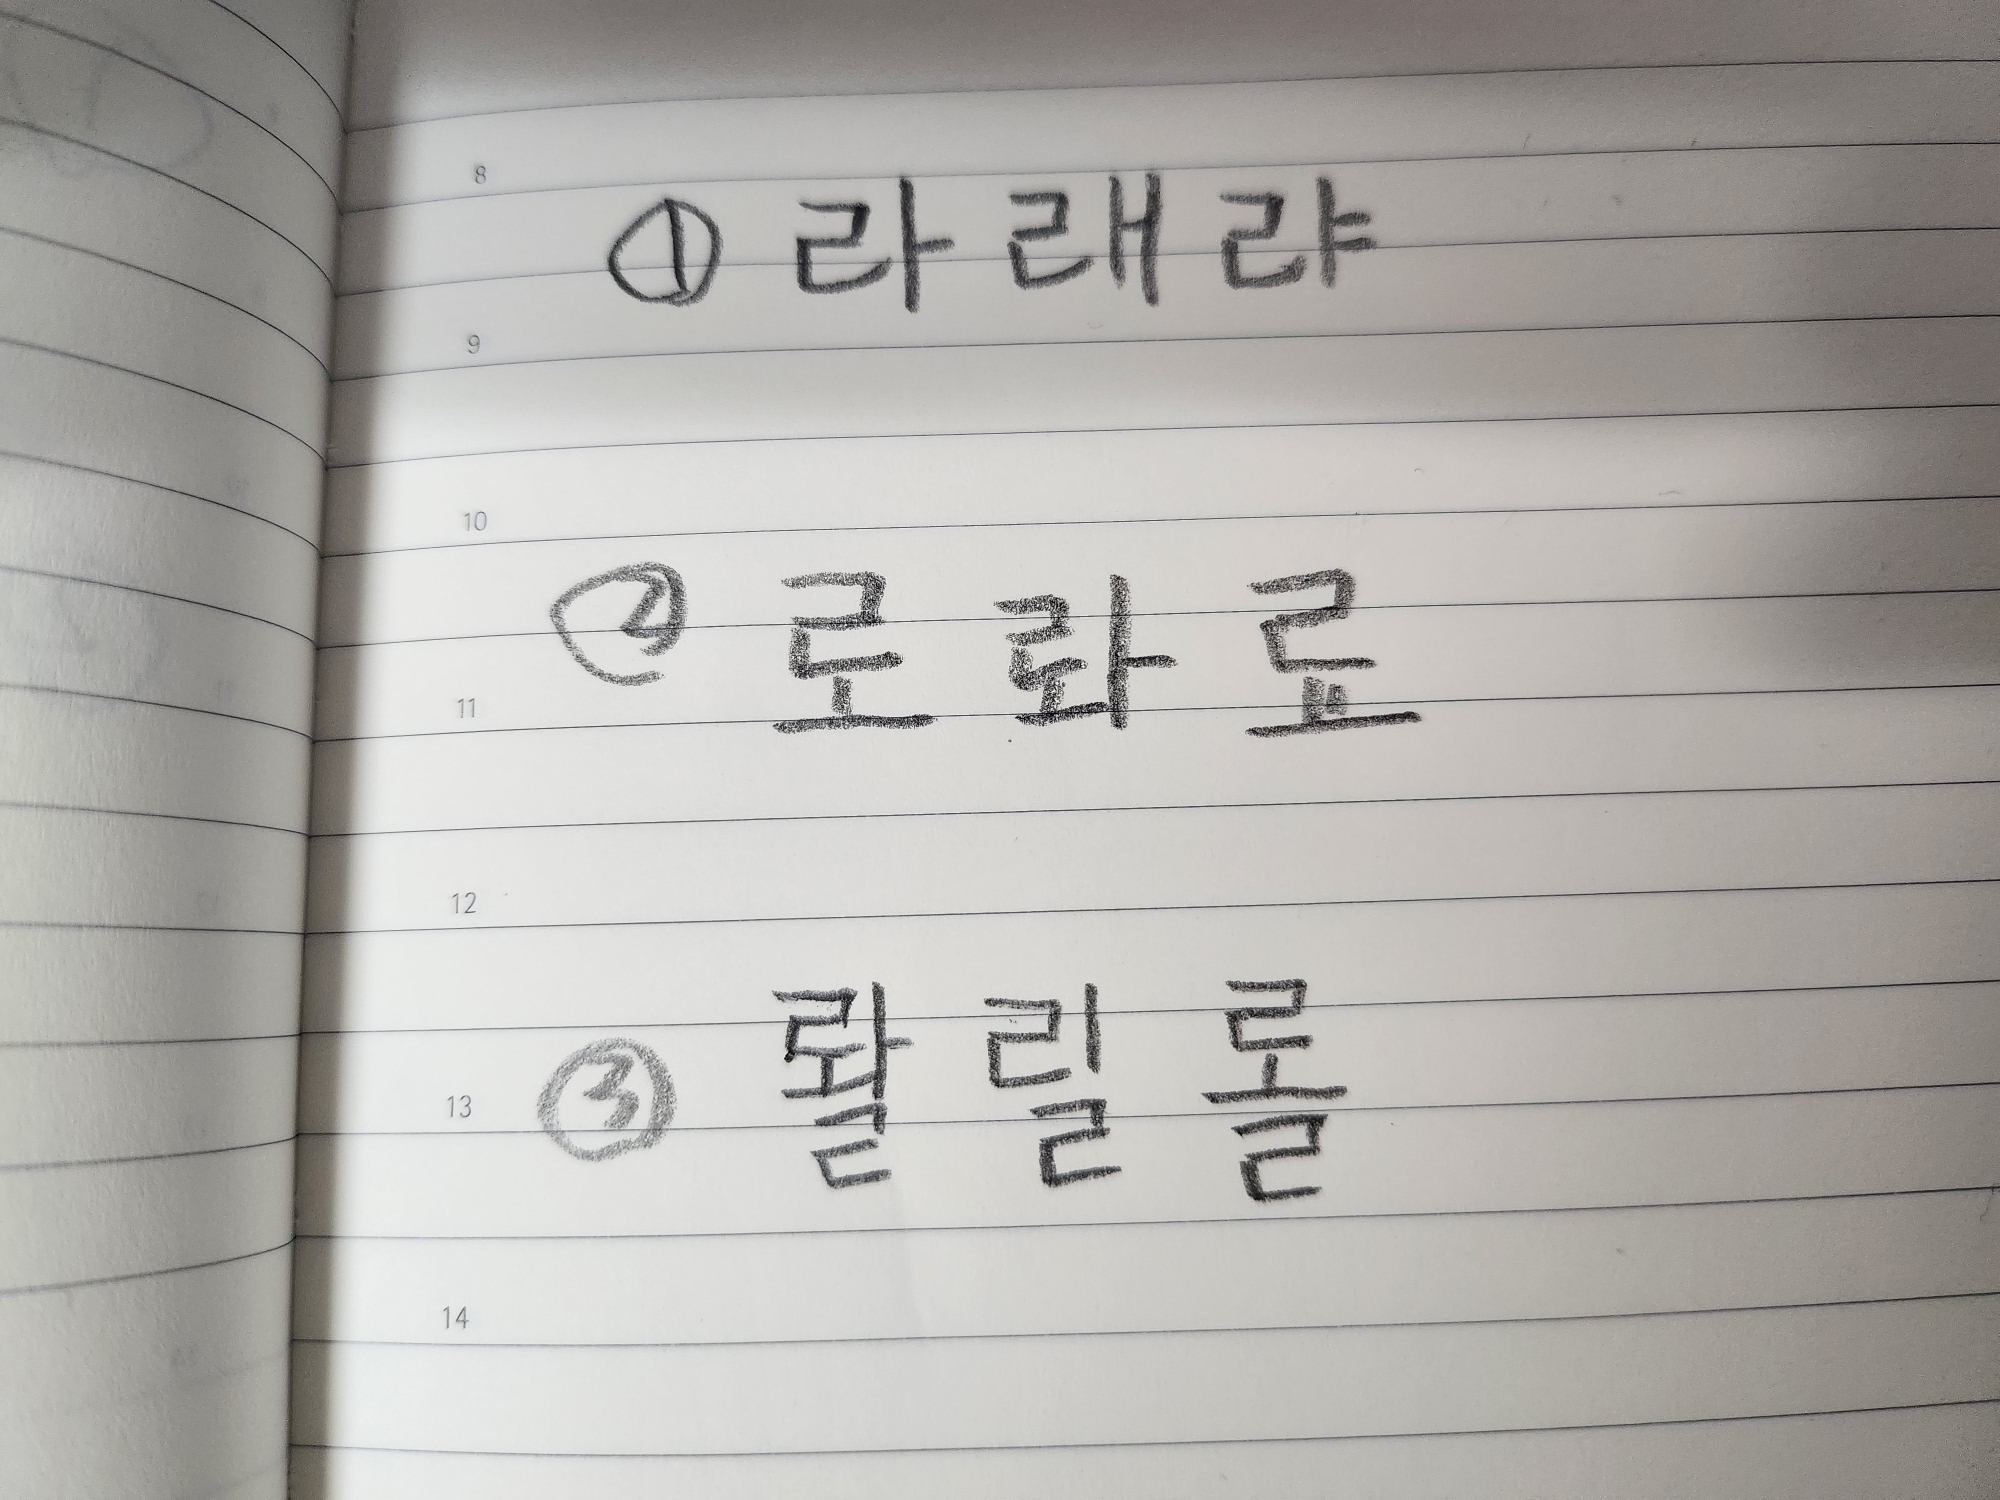 8
① 라 래 랴
9
10
② 로 롸 료
11
12
③ 뢀 릴 롤
13
14